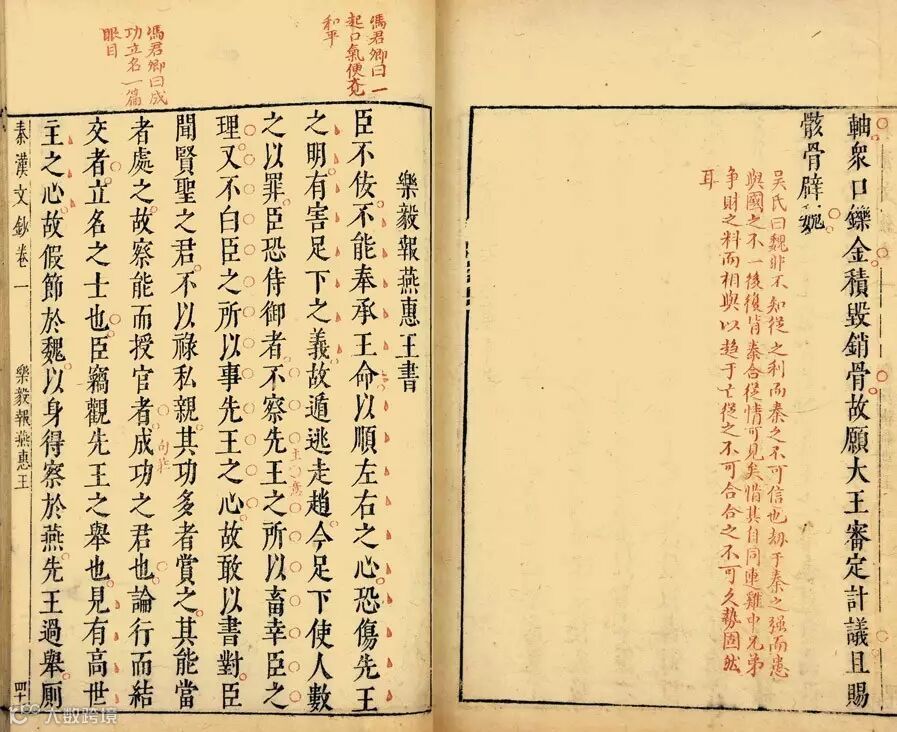 軸衆口鑠金積毀銷骨故願大王審定計議且賜
骸骨辟魏
吳氏曰魏非不知從之利而秦之不可信也劫于秦之強而患
與國之不一後復背秦合從情可見矣惜其自同連雞中兄弟
争財之料而相與以趋于亡從之不可合合之不可久勢固然
耳
馮君卿曰一
起口氣便竟
和平
馮君卿曰成
功立名一篇
眼目
樂毅報燕惠王書
臣不佞不能奉承王命以順左右之心恐傷先王
之明有害足下之義故遁逃走趙今足下使人數
之以罪臣恐侍御者不察先王之所以畜幸臣之
理又不白臣之所以事先王之心故敢以書對臣
聞賢聖之君不以祿私親其功多者賞之其能當
者處之故察能而授官者成功之君也論行而結
交者立名之士也臣竊觀先王之舉也見有高世
主之心故假節於魏以身得察於燕先王過舉厠
秦漢文鈔卷一
樂毅報燕惠王
四十
大數跨境